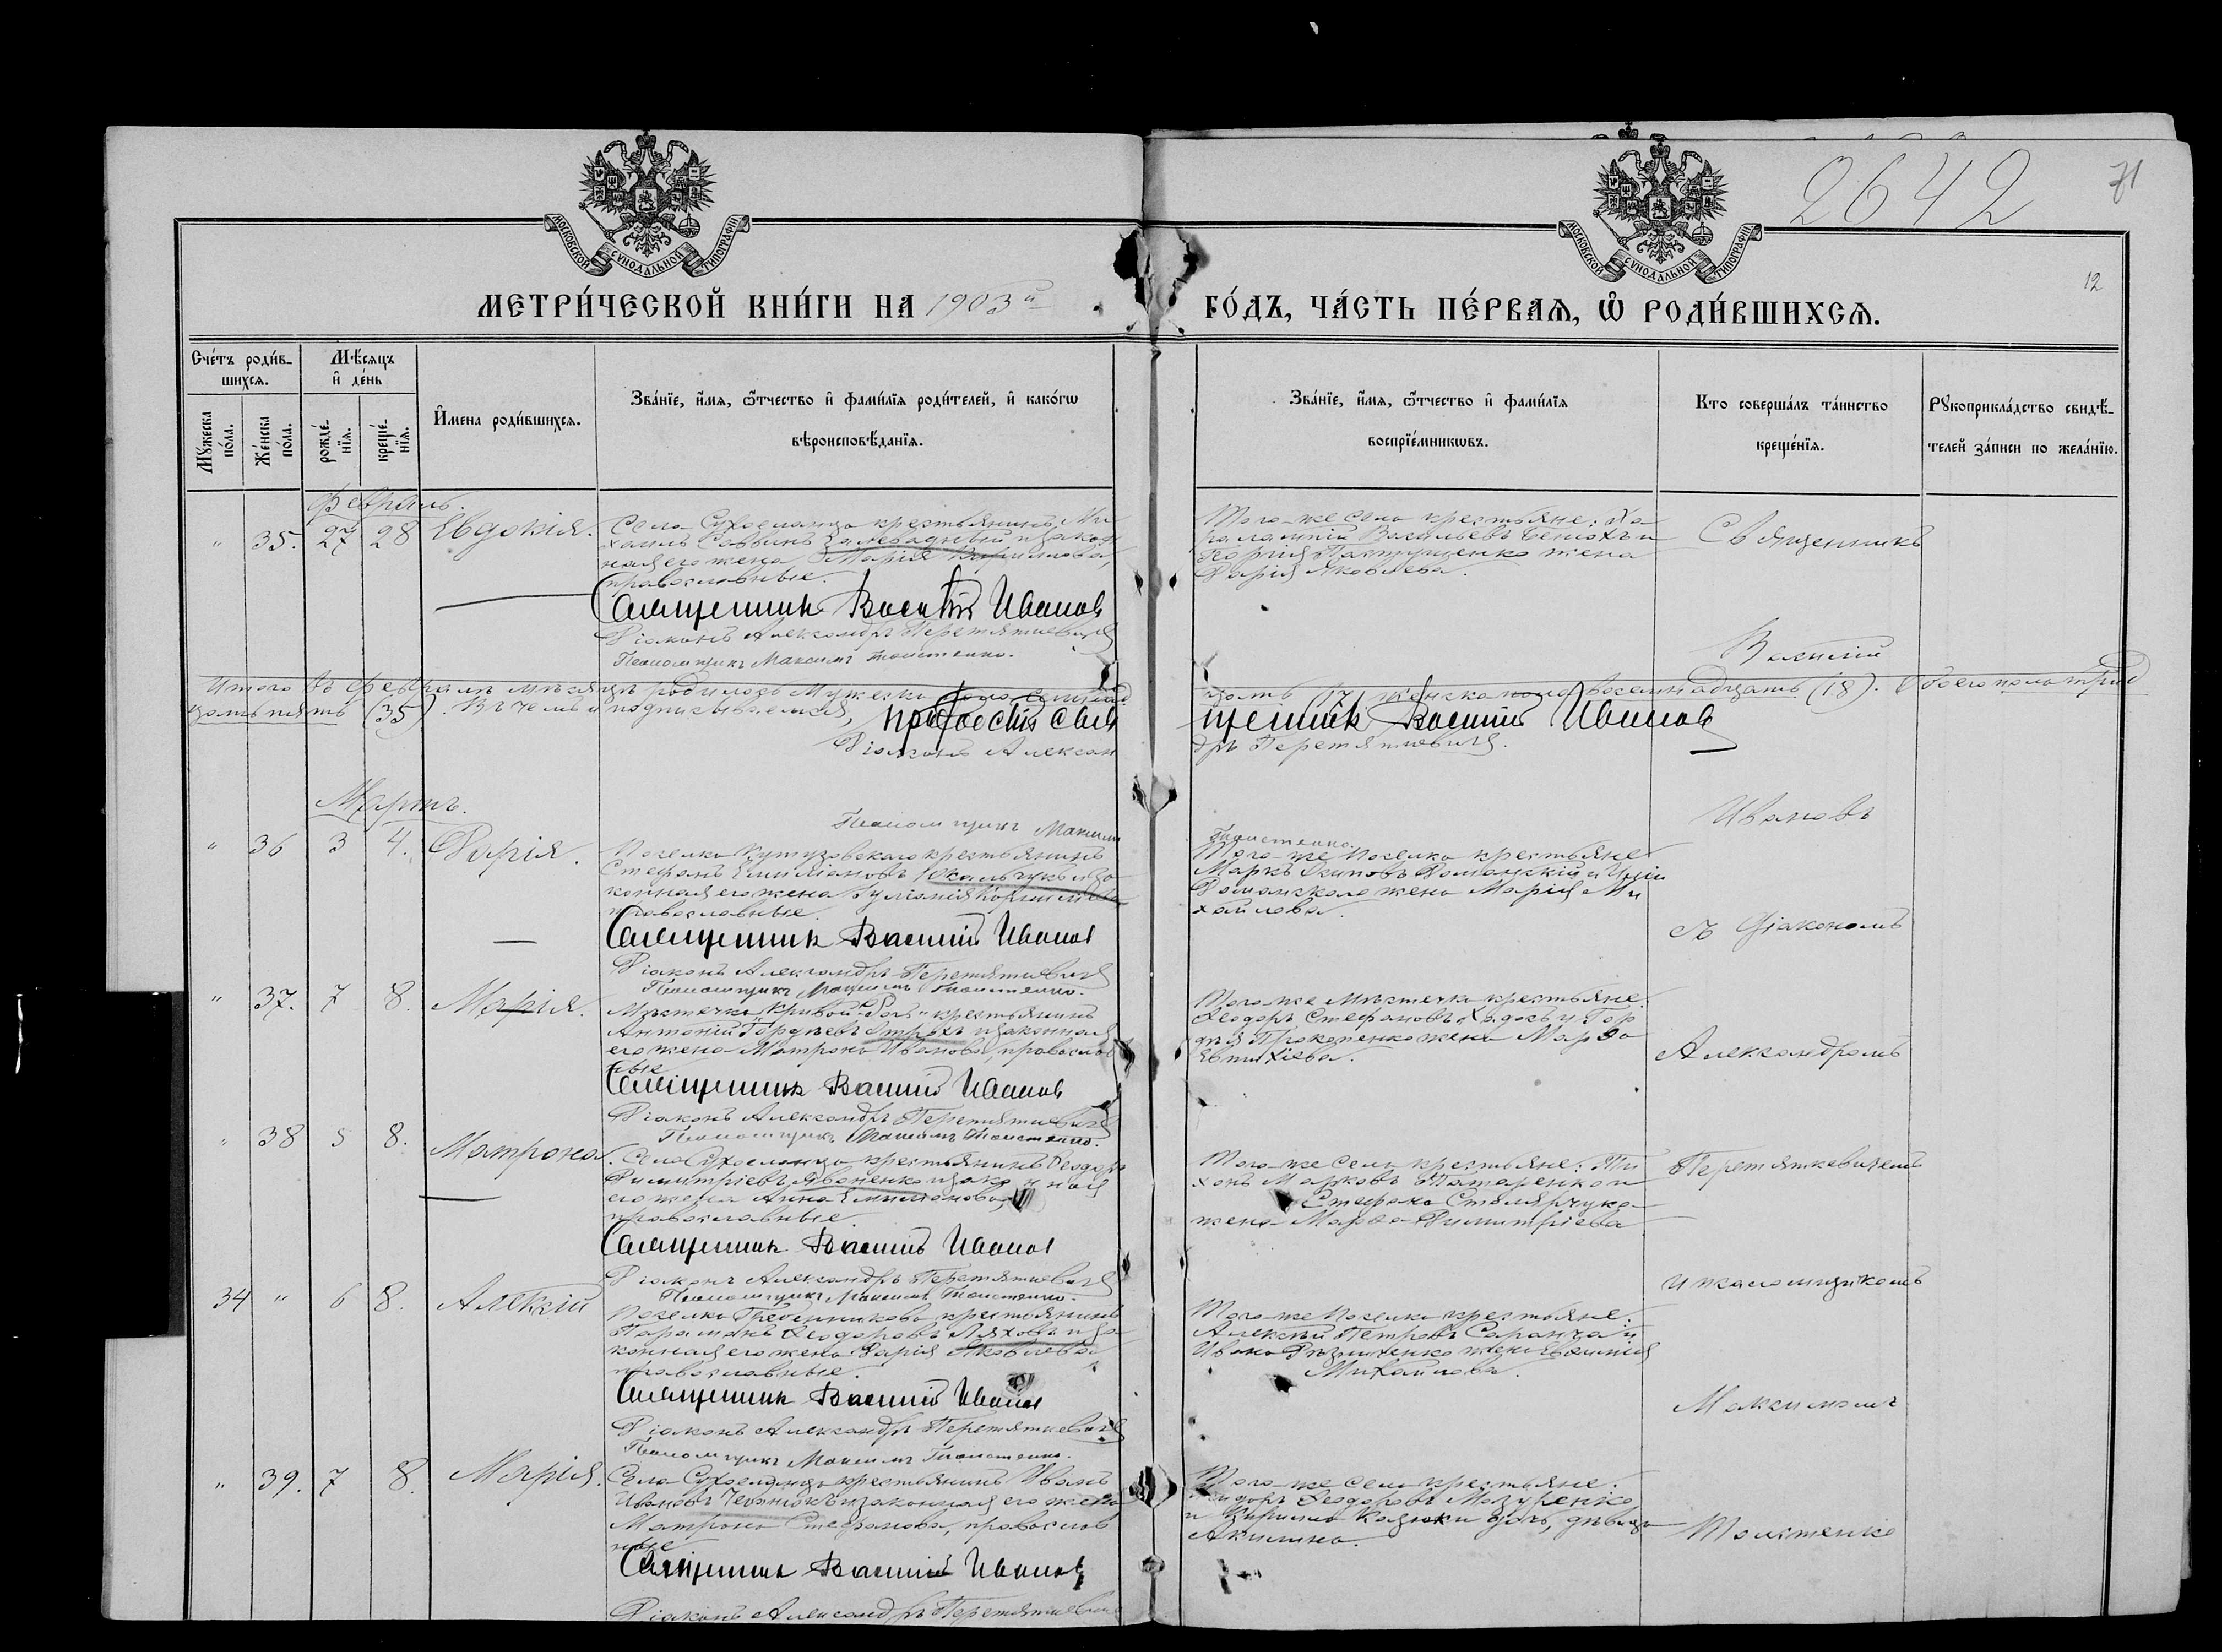 2642
71
12
МОСКОВСКОЙ СУНОДАЛЬНОЙ ТИПОГРАФІИ
МОСКОВСКОЙ СУНОДАЛЬНОЙ ТИПОГРАФІИ
МЕТРИ́ЧЕСКОЙ КНИ́ГИ НА 1903й
ГО́ДЪ, ЧА́СТЬ ПЕ́РВАѦ, Ѡ҆ РОДИ́ВШИХСѦ.
Сче́тъ роди́в-
шихсѧ.
Мꙋ́жеска по́ла.
Же́нска по́ла.
Мѣ́сѧцъ
и҆ де́нь
рожде́-
нїѧ.
креще́-
нїѧ.
И҆мена̀ роди́вшихсѧ.
Зва́нїе, и҆́мѧ, ѻ҆́тчество и҆ фами́лїѧ роди́телей, и҆ како́гѡ
вѣроисповѣ́данїѧ.
Зва́нїе, и҆́мѧ, ѻ҆́тчество и҆ фами́лїѧ
воспрїе́мникѡвъ.
Кто̀ соверша́лъ та́инство
креще́нїѧ.
Рꙋкоприкла́дство свидѣ́-
телей за́писи по жела́нїю.
Февраль.
" 35. 27 28 Евдокія.
Села Сухоеланца крестьянинъ Ми
хаилъ Саввинъ Залевадный и закон
ная его жена Марія
православные.
Священникъ Василій Иванов
Діаконъ Александръ Перетяткевичъ
Псаломщикъ Максимъ Толстенко.
Того-же села крестьяне: Ха
ралампій Васильевъ и
Георгія жена
Дарія Яковлева.
Священникъ
Василій
Итого въ Февралѣ мѣсяцѣ родилось Мужеска пола семнад
цать 17, женска пола восемнадцать (18). Обоего пола трид
цать пять (35). Въ чемъ и подписываемся,
Священник Василий Иванов
Діаконъ Александръ Перетяткевичъ.
Псаломщикъ Максим
Толстенко.
Мартъ.
" 36 3 4. Дарія.
Поселка Кутузовскаго крестьянинъ
Стефанъ Емиліановъ и за
конная его жена
православные.
Священник Василий Иванов
Діаконъ Александръ Перетяткевичъ
Псаломщикъ Максимъ Толстенко.
Того-же поселка крестьяне
Маркъ Осиповъ Романскій и
Романскаго жена Марія Ми
хайлова.
Ивановъ
съ Діакономъ
" 37. 7 8. Марія.
Мѣстечка "Кривой-Рогъ" крестьянинъ
Антоній Гордѣевъ и законная
его жена Матрона Иванова, православ
ные
Священник Василий Иванов
Діаконъ Александръ Перетяткевичъ
Псаломщикъ Максимъ Толстенко.
Того-же мѣстечка крестьяне:
Ѳеодоръ Стефановъ и Гор
дѣя Прокопенко жена Марѳа
Евтихіева.
Александромъ
" 38 5 8. Матрона.
Села Сухоеланца крестьянинъ Ѳеодоръ
Димитріевъ Явоненко и законная
его жена Анна Емиліанова,
православные.
Священник Василий Иванов
Діаконъ Александръ Перетяткевичъ
Псаломщикъ Максимъ Толстенко.
Того-же села крестьяне: Ти
хонъ Марковъ Татаренко и
Стефана Столярчука
жена Марѳа Димитріева
Перетяткевичемъ
34 " 6 8. Алексій
Поселка Гребенникова крестьянинъ
Парамонъ Ѳеодоровъ Ляховъ и за
конная его жена Дарія Яковлева
православные.
Священник Василий Иванов
Діаконъ Александръ Перетяткевичъ
Псаломщикъ Максимъ Толстенко.
Того-же поселка крестьяне:
Алексѣй Петровъ Саранча и
Ивана жена Евфимія
Михайлова.
и псаломщикомъ
Максимомъ
" 39. 7 8. Марія.
Села Сухоеланца крестьянинъ Иванъ
Ивановъ и законная его жена
Матрона Стефанова, православ
ные
Священник Василий Иванов
Діаконъ Александръ Перетяткевичъ
Того-же села крестьяне:
Ѳеодоровъ Мазуренко
и Кирилла дочь, дѣвица
Акилина.
Толстенко